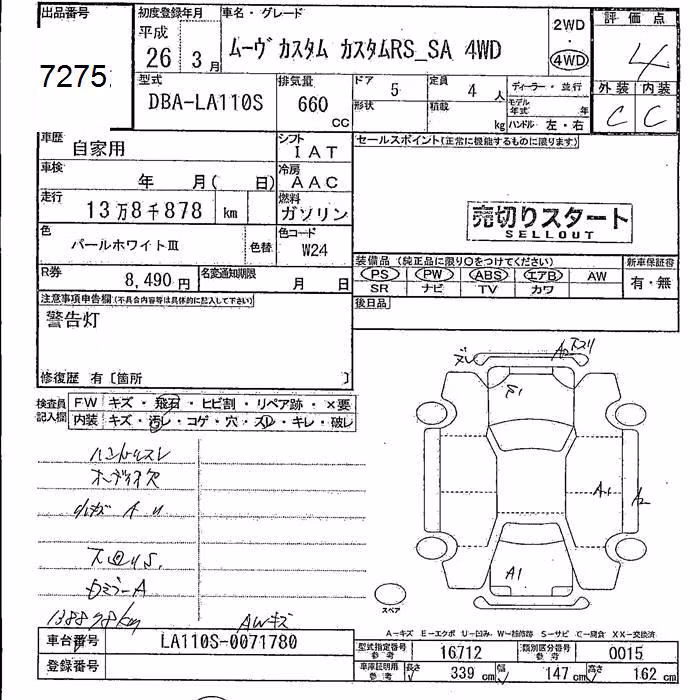 出品番号
7275
初度登録年月
平成
26 3 月
車名・グレード
ムーヴカスタム カスタムRS_SA 4WD
2WD
・
4WD
評価点
4
外装 内装
C C
型式
DBA-LA110S
排気量
660
CC
ドア 5
定員 4 人
形状
積載 kg
ディーラー・並行
モデル年式 年
ハンドル 左・右
車歴
自家用
シフト
IAT
車検
年 月( 日)
冷房
AAC
走行
13万8千878 km
燃料
ガソリン
色
パールホワイトⅢ
色替
色コード
W24
R券
8,490 円
名変通知期限
月 日
セールスポイント(正常に機能するものに限ります)
売切りスタート
SELLOUT
装備品 (純正品に限り○をつけてください)
新車保証書
PS PW ABS エアB AW
有・無
SR ナビ TV カワ
後日品
注意事項申告欄(不具合内容等は具体的に記入して下さい)
警告灯
修復歴 有〔箇所 〕
検査員
記入欄
FW キズ・飛石・ヒビ割・リペア跡・×要
内装 キズ・汚レ・コゲ・穴・スレ・キレ・破レ
ハンドルスレ
オーディオ欠
A1
A1
A2
スペア
138878km
AWキズ
A-キズ E-エクボ U-凹み W-補修跡 S-サビ C-腐食 XX-交換済
車台番号
LA110S-0071780
登録番号
型式指定番号
参考
16712
類別区分番号
参考
0015
車庫証明用
参考
長さ 339 cm
幅 147 cm
高さ 162 cm